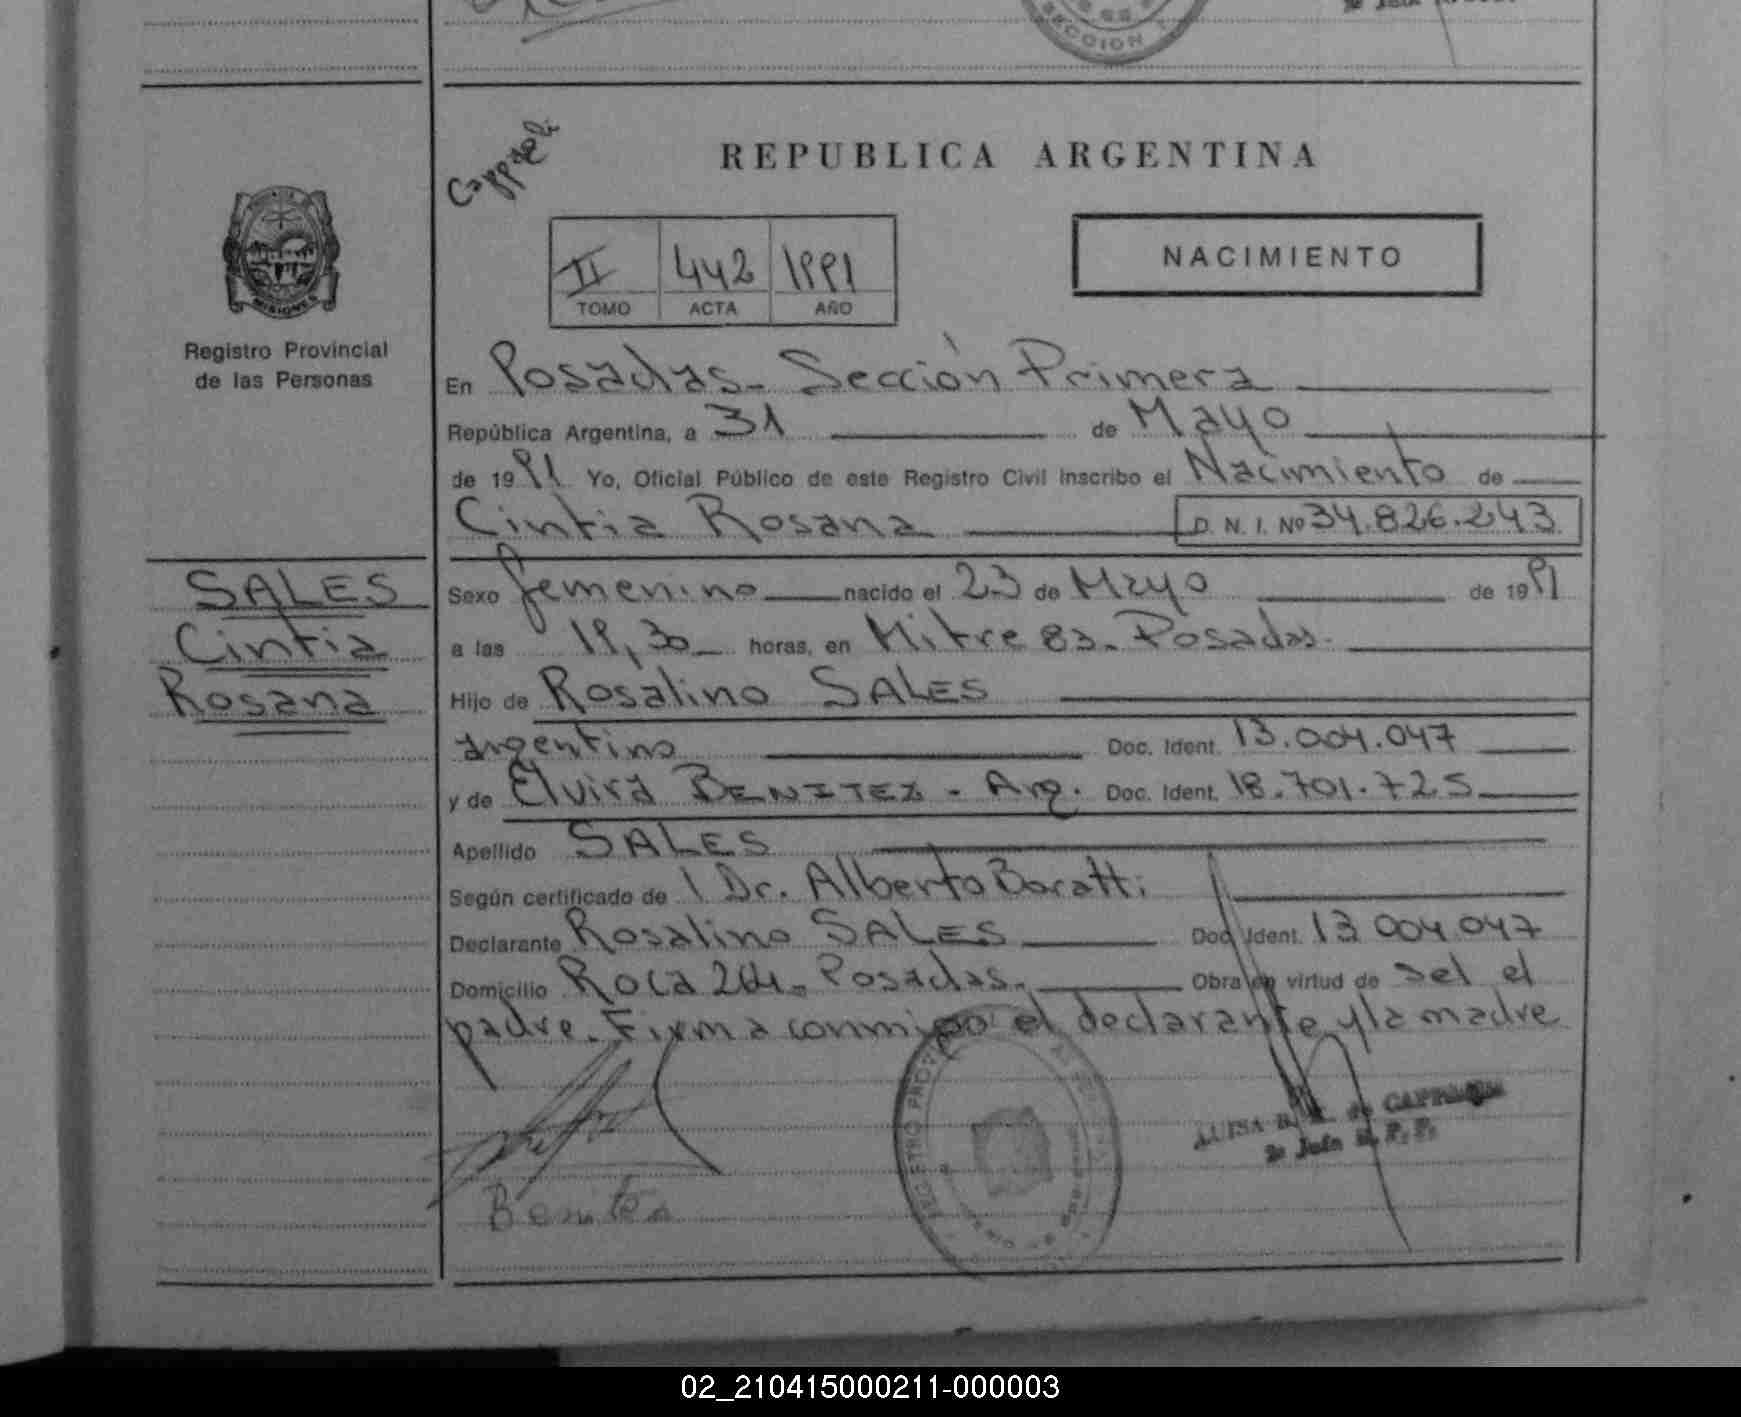 SECCION
Cappaeli
REPUBLICA ARGENTINA
II 442 1991
TOMO ACTA AÑO
NACIMIENTO
MISIONES
Registro Provincial
de las Personas
En Posadas - Sección Primera
República Argentina, a 31 de Mayo
de 1991 Yo, Oficial Público de este Registro Civil Inscribo el Nacimiento de
Cintia Rosana D. N. I. Nº 34.826.243
SALES
Cintia
Rosana
Sexo femenino nacido el 23 de Mayo de 1991
a las 19,30 horas, en Mitre 83 - Posadas.
Hijo de Rosalino SALES
argentino Doc. Ident. 13.004.047
y de Elvira BENITEZ - Arg. Doc. Ident. 18.701.725
Apellido SALES
Según certificado de l Dr. Alberto Boratti
Declarante Rosalino SALES Doc. Ident. 13 004.047
Domicilio Roca 204 - Posadas. Obra en virtud de sel el
padre. Firma conmigo el declarante y la madre
REGISTRO PROV
LUISA de
2º Jefe R. P. P.
Benites
02_210415000211-000003